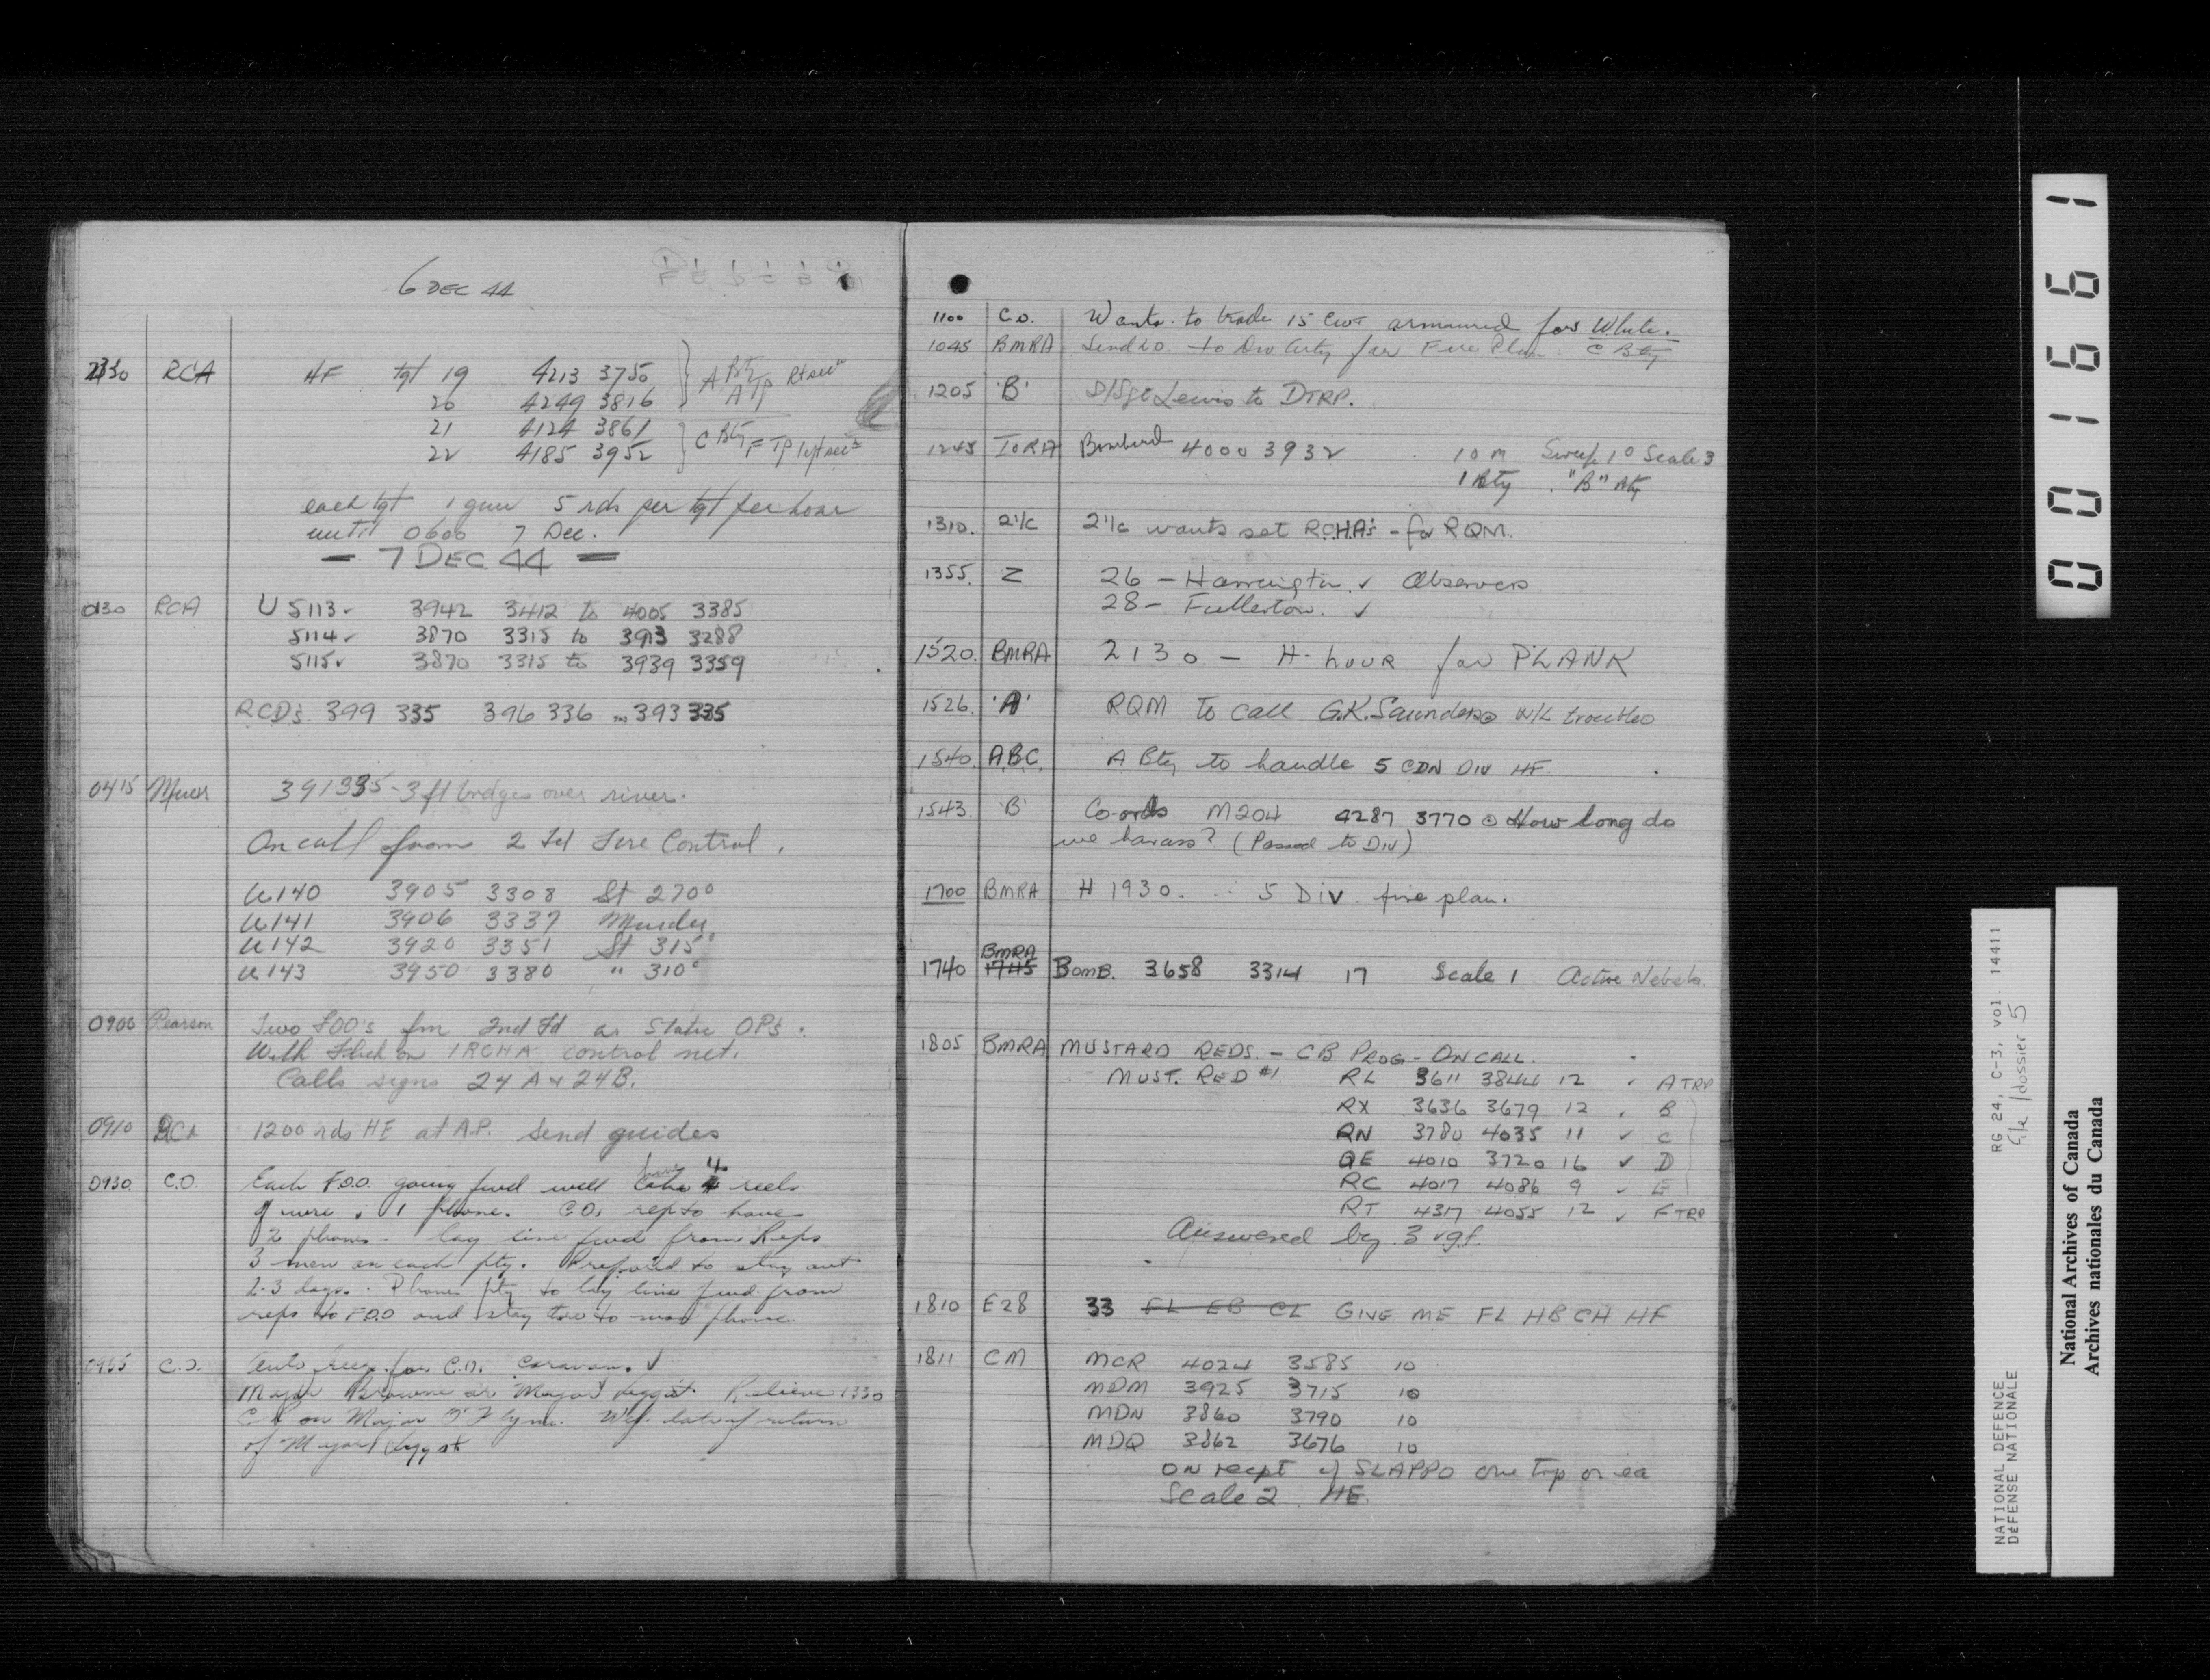 6 DEC 44
2330 RCA HF tgt 19 4213 3750 A Bty Rt sec
20 4249 3816 A Tp
21 4124 3861 C Bty
22 4185 3952 F Tp left sec
each tgt 1 gun 5 rds per tgt per hour
until 0600 7 Dec.
— 7 DEC 44 —
0130 RCA U 5113 ✓ 3942 3412 to 4005 3385
5114 ✓ 3870 3315 to 3913 3288
5115 ✓ 3870 3315 to 3939 3359
RCD's. 399 335 396 336 393 335
0415 391335 - 3 ft bridges over river.
On call from 2 Fd Fire Control.
U140 3905 3308 St 270°
U141 3906 3337 Murder
U142 3920 3351 St 315°
U143 3950 3380 " 310°
0900 Pearson Two FOO's fm 2nd Fd as Static OPs.
Will on 1RCHA control net.
Calls signs 24A & 24B.
0910 RCA 1200 rds HE at A.P. Send guides
0930. C.O. Each F.O.O. going fwd will 4 reels
of wire & 1 phone. C.O. rep to have
2 phones. lay line fwd from Reps
3 men on each pty. Prepared to stay out
2-3 days. Phone pty to lay line fwd from
reps to FOO and stay two to man phone.
0955 C.O. for C.O. caravan. ✓
Major Browne or Major Relieve 1330
on Major O'Flynn. date of return
of Major
1100 C.O. Wants to trade 15 Cwt armoured for White.
1045 BMRA Send LO. to Div Arty for Fire Plan. C Bty
1205 'B' Lewis to DTRP.
1245 IORA Bombard 4000 3932 10 m Sweep 1° Scale 3
1 Bty "B" Bty
1310. 2i/c 2i/c wants set RCHA's - for RQM.
1355. Z 26 — Harrington ✓ Observers
28 — Fullerton. ✓
1520. BMRA 2130 — H-hour for PLANK
1526. 'A' RQM to call G.K. Saunders W/L troubles
1540. ABC. A Bty to handle 5 CDN DIV HF.
1543. 'B' Co-ords M204 4287 3770 How long do
we harass? (Passed to DIV)
1700 BMRA H 1930. 5 Div fire plan.
BMRA
1740 1745 BOMB. 3658 3314 17 Scale 1 Active Nebels.
1805 BMRA MUSTARD REDS. — CB PROG - ON CALL.
MUST. RED #1. RL 3611 3844 12 ✓ A TRP
RX 3636 3679 12 ✓ B
RN 3780 4035 11 ✓ C
QE 4010 3720 16 ✓ D
RC 4017 4086 9 ✓ E
RT 4317 4055 12 ✓ F TRP
Answered by 3 vgf.
1810 E28 33 FL EB CL GIVE ME FL HB CH HF
1811 CM MCR 4024 3585 10
MDM 3925 3715 10
MDN 3860 3790 10
MDQ 3862 3676 10
ON recpt of SLAPPO one trp on ea
Scale 2. HE.
001661
RG 24, C-3, vol. 14411
file / dossier 5
NATIONAL DEFENCE
DÉFENSE NATIONALE
National Archives of Canada
Archives nationales du Canada